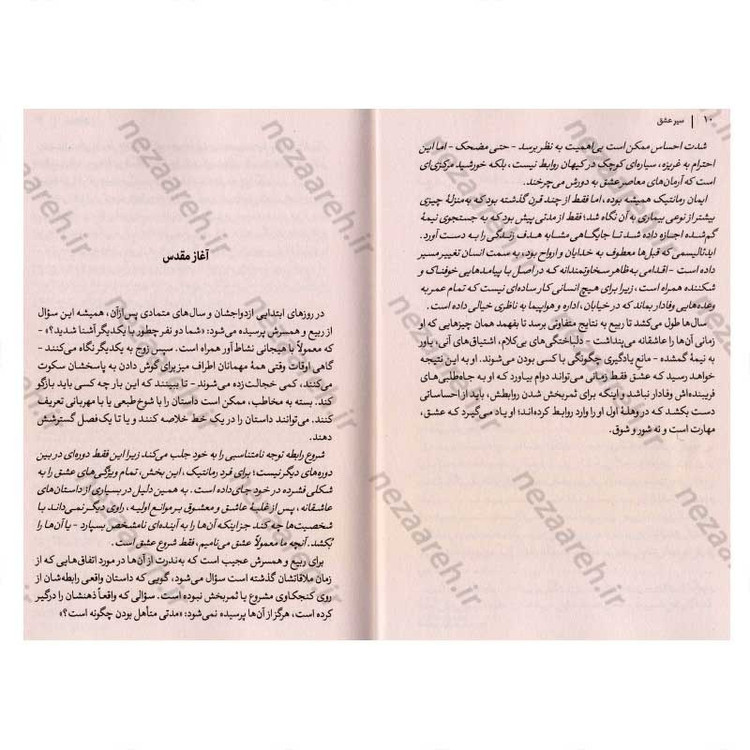 ۱۰ | سیر عشق
شدت احساس ممکن است بی‌اهمیت به نظر برسد - حتی مضحک - اما این
احترام به غریزه، سیاره‌ای کوچک در کیهان روابط نیست، بلکه خورشید مرکزی‌ای
است که آرمان‌های معاصر عشق به دورش می‌چرخند.
ایمان رمانتیک همیشه بوده، اما فقط از چند قرن گذشته بود که به‌منزلهٔ چیزی
بیشتر از نوعی بیماری به آن نگاه شد؛ فقط از مدتی پیش بود که به جستجوی نیمهٔ
گم‌شده اجازه داده شد تا جایگاهی مشابه هدف زندگی را به دست آورد.
ایدئالیسمی که قبل‌ها معطوف به خدایان و ارواح بود، به سمت انسان تغییر مسیر
داده است - اقدامی به‌ظاهر سخاوتمندانه که در اصل با پیامدهایی خوفناک و
شکننده همراه است، زیرا برای هیچ انسانی کار ساده‌ای نیست که تمام عمر به
وعده‌هایی وفادار بماند که در خیابان، اداره و هواپیما به ناظری خیالی داده است.
سال‌ها طول می‌کشد تا ربیع به نتایج متفاوتی برسد تا بفهمد همان چیزهایی که او
زمانی آن‌ها را عاشقانه می‌پنداشت - دلباختگی‌های بی‌کلام، اشتیاق‌های آنی، باور
به نیمهٔ گمشده - مانع یادگیری چگونگی با کسی بودن می‌شوند. او به این نتیجه
خواهد رسید که عشق فقط زمانی می‌تواند دوام بیاورد که او به جاه‌طلبی‌های
فریبنده‌اش وفادار نباشد و اینکه برای ثمربخش شدن روابطش، باید از احساساتی
دست بکشد که در وهلهٔ اول او را وارد روابط کرده‌اند؛ او یاد می‌گیرد که عشق،
مهارت است و نه شور و شوق.
آغاز مقدس
در روزهای ابتدایی ازدواجشان و سال‌های متمادی پس از آن، همیشه این سؤال
از ربیع و همسرش پرسیده می‌شود: «شما دو نفر چطور با یکدیگر آشنا شدید؟» -
که معمولاً با هیجانی نشاط‌آور همراه است. سپس زوج به یکدیگر نگاه می‌کنند -
گاهی اوقات وقتی همهٔ مهمانان اطراف میز برای گوش دادن به پاسخشان سکوت
می‌کنند، کمی خجالت‌زده می‌شوند - تا ببینند که این بار چه کسی باید بازگو
کند. بسته به مخاطب، ممکن است داستان را با شوخ‌طبعی یا با مهربانی تعریف
کنند. می‌توانند داستان را در یک خط خلاصه کنند و یا تا یک فصل گسترشش
دهند.
شروع رابطه توجه نامتناسبی را به خود جلب می‌کند زیرا این فقط دوره‌ای در بین
دوره‌های دیگر نیست؛ برای فرد رمانتیک، این بخش، تمام ویژگی‌های عشق را به
شکلی فشرده در خود جای‌داده است. به همین دلیل در بسیاری از داستان‌های
عاشقانه، پس از غلبهٔ عاشق و معشوق بر موانع اولیه، راوی دیگر نمی‌داند با
شخصیت‌ها چه کند جز اینکه آن‌ها را به آینده‌ای نامشخص بسپارد - یا آن‌ها را
بُکشد. آنچه ما معمولاً عشق می‌نامیم، فقط شروع عشق است.
برای ربیع و همسرش عجیب است که به‌ندرت از آن‌ها در مورد اتفاق‌هایی که از
زمان ملاقاتشان گذشته است سؤال می‌شود، گویی که داستان واقعی رابطه‌شان از
روی کنجکاوی مشروع یا ثمربخش نبوده است. سؤالی که واقعاً ذهنشان را درگیر
کرده است، هرگز از آن‌ها پرسیده نمی‌شود: «مدتی متأهل بودن چگونه است؟»
nezaareh.ir
nezaareh.ir
nezaareh.ir
nezaareh.ir
nezaareh.ir
nezaareh.ir
nezaareh.ir
nezaareh.ir
nezaareh.ir